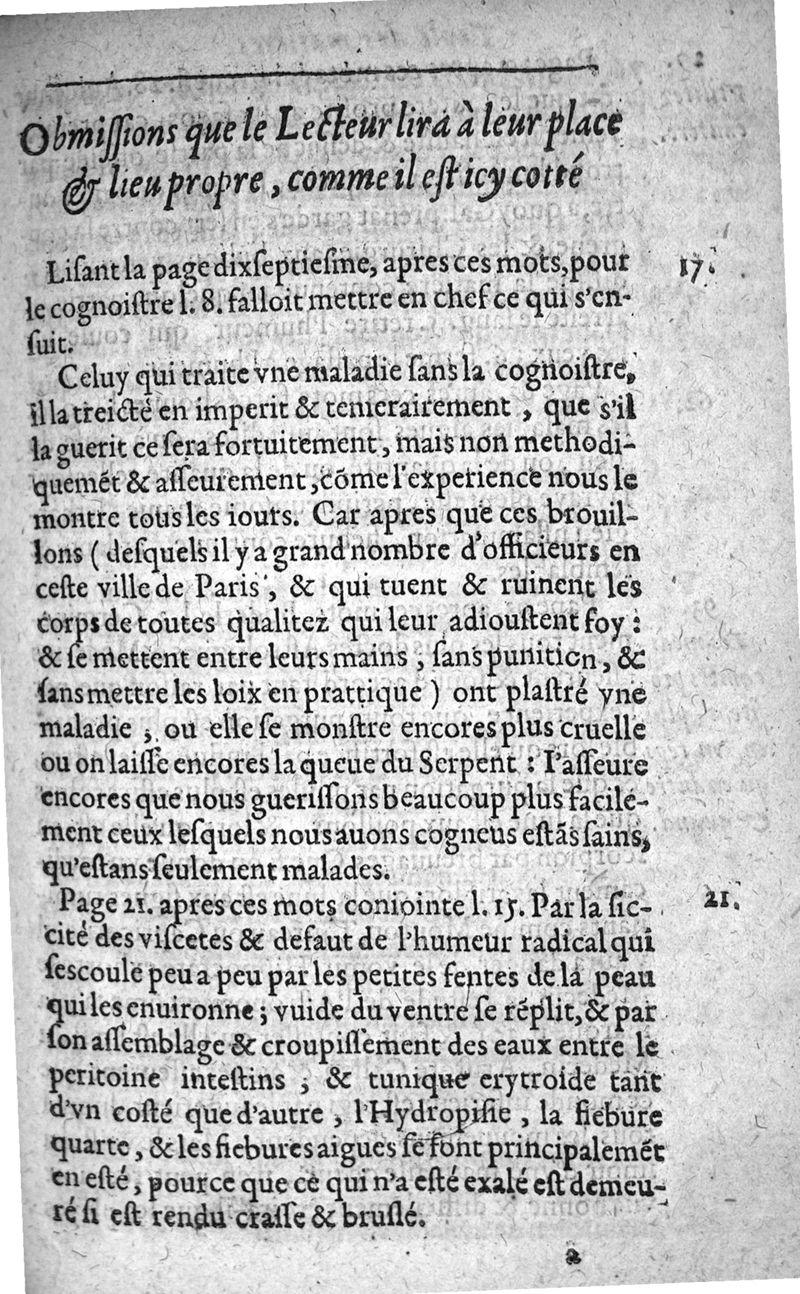 Obmiſſions que le Lecteur lira à leur place
& lieu propre, comme il eſt icy cotté
Liſant la page dixſeptieſme, apres ces mots, pour
17.
le cognoiſtre l. 8. falloit mettre en chef ce qui s'en-
ſuit.
Celuy qui traite vne maladie ſans la cognoiſtre,
il la treicté en imperit & temerairement, que s'il
la guerit ce ſera fortuitement, mais non methodi-
quemét & aſſeurement, cõme l'experience nous le
montre tous les iours. Car apres que ces brouil-
lons (deſquels il y a grand nombre d'officieurs en
ceſte ville de Paris, & qui tuent & ruinent les
corps de toutes qualitez qui leur adiouſtent foy:
& ſe mettent entre leurs mains, ſans punition, &
ſans mettre les loix en prattique) ont plaſtré vne
maladie, ou elle ſe monſtre encores plus cruelle
ou on laiſſe encores la queue du Serpent: I'aſſeure
encores que nous gueriſſons beaucoup plus facile-
ment ceux leſquels nous auons cogneus eſtãs ſains,
qu'eſtans ſeulement malades.
Page 21. apres ces mots coniointe l. 15. Par la ſic-
21.
cité des viſcetes & defaut de l'humeur radical qui
ſeſcoule peu a peu par les petites fentes de la peau
qui les enuironne; vuide du ventre ſe réplit, & par
ſon aſſemblage & croupiſſement des eaux entre le
peritoine inteſtins; & tunique erytroide tant
d'vn coſté que d'autre, l'Hydropiſie, la fiebure
quarte, & les fiebures aigues ſe font principalemét
en eſté, pource que ce qui n'a eſté exalé eſt demeu-
ré ſi eſt rendu craſſe & bruſlé.